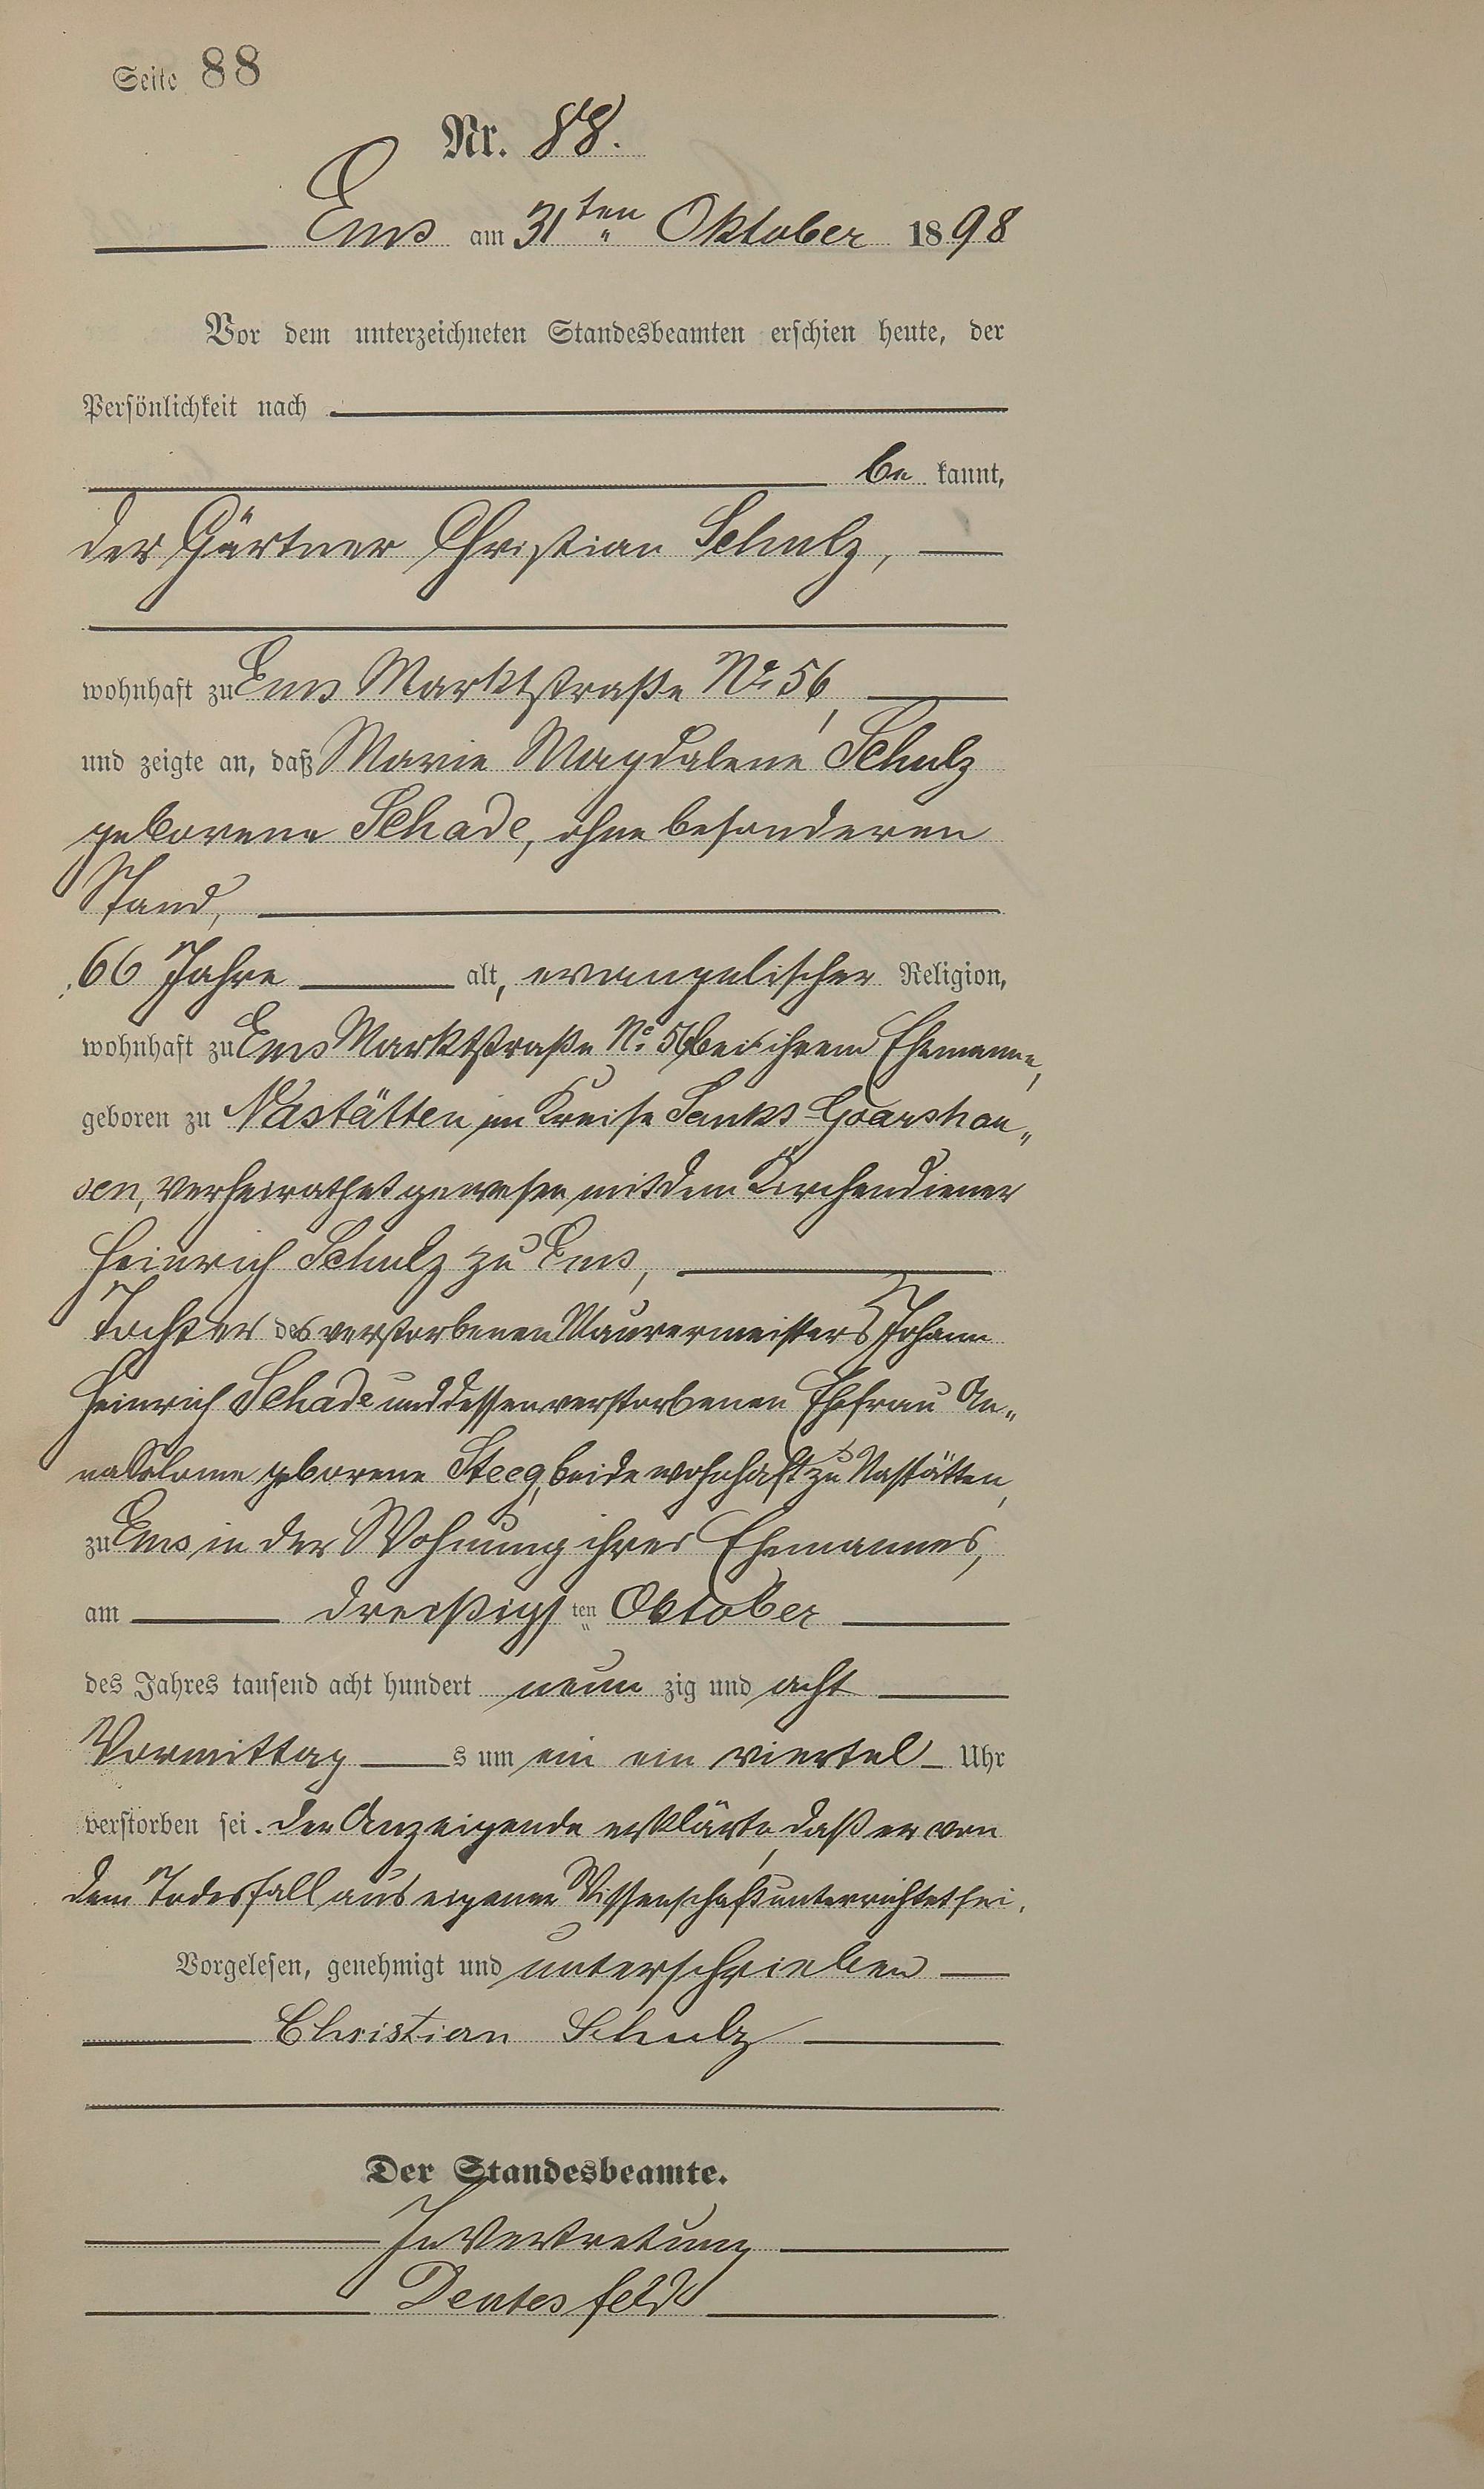 Seite 88
Nr. 88.
Ems am 31ten Oktober 1898
Vor dem unterzeichneten Standesbeamten erschien heute, der
Persönlichkeit nach
be kannt,
der Gärtner Christian Schulz,
wohnhaft zu Ems Marktstraße No 56,
und zeigte an, daß Marie Magdalene Schulz
geborene Schade, ohne besonderen
Stand,
66 Jahre alt, evangelischer Religion,
wohnhaft zu Ems Marktstraße No. 56 bei ihrem Ehemanne,
geboren zu Nastätten im Kreise Sankt Goarshau„
sen, verheirathet gewesen mit dem Kirchendiener
Heinrich Schulz zu Ems,
Tochter des verstorbenen Maurermeisters Johann
Heinrich Schade und dessen verstorbenen Ehefrau An„
na Salome geborene Steeg, beide wohnhaft zu Nastätten,
zu Ems in der Wohnung ihres Ehemannes,
am dreißigsten Oktober
des Jahres tausend acht hundert neun zig und acht
Vormittags um ein ein viertel Uhr
verstorben sei. Der Anzeigende erklärte, daß er von
dem Todesfall aus eigener Wissenschaft unterrichtet sei.
Vorgelesen, genehmigt und unterschrieben
Christian Schulz
Der Standesbeamte.
In Vertretung